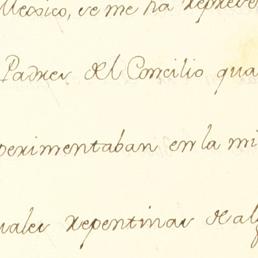 Mexico, se me ha represe
Padres del Concilio qua
perimentaban en la mi
uales repentinas de al